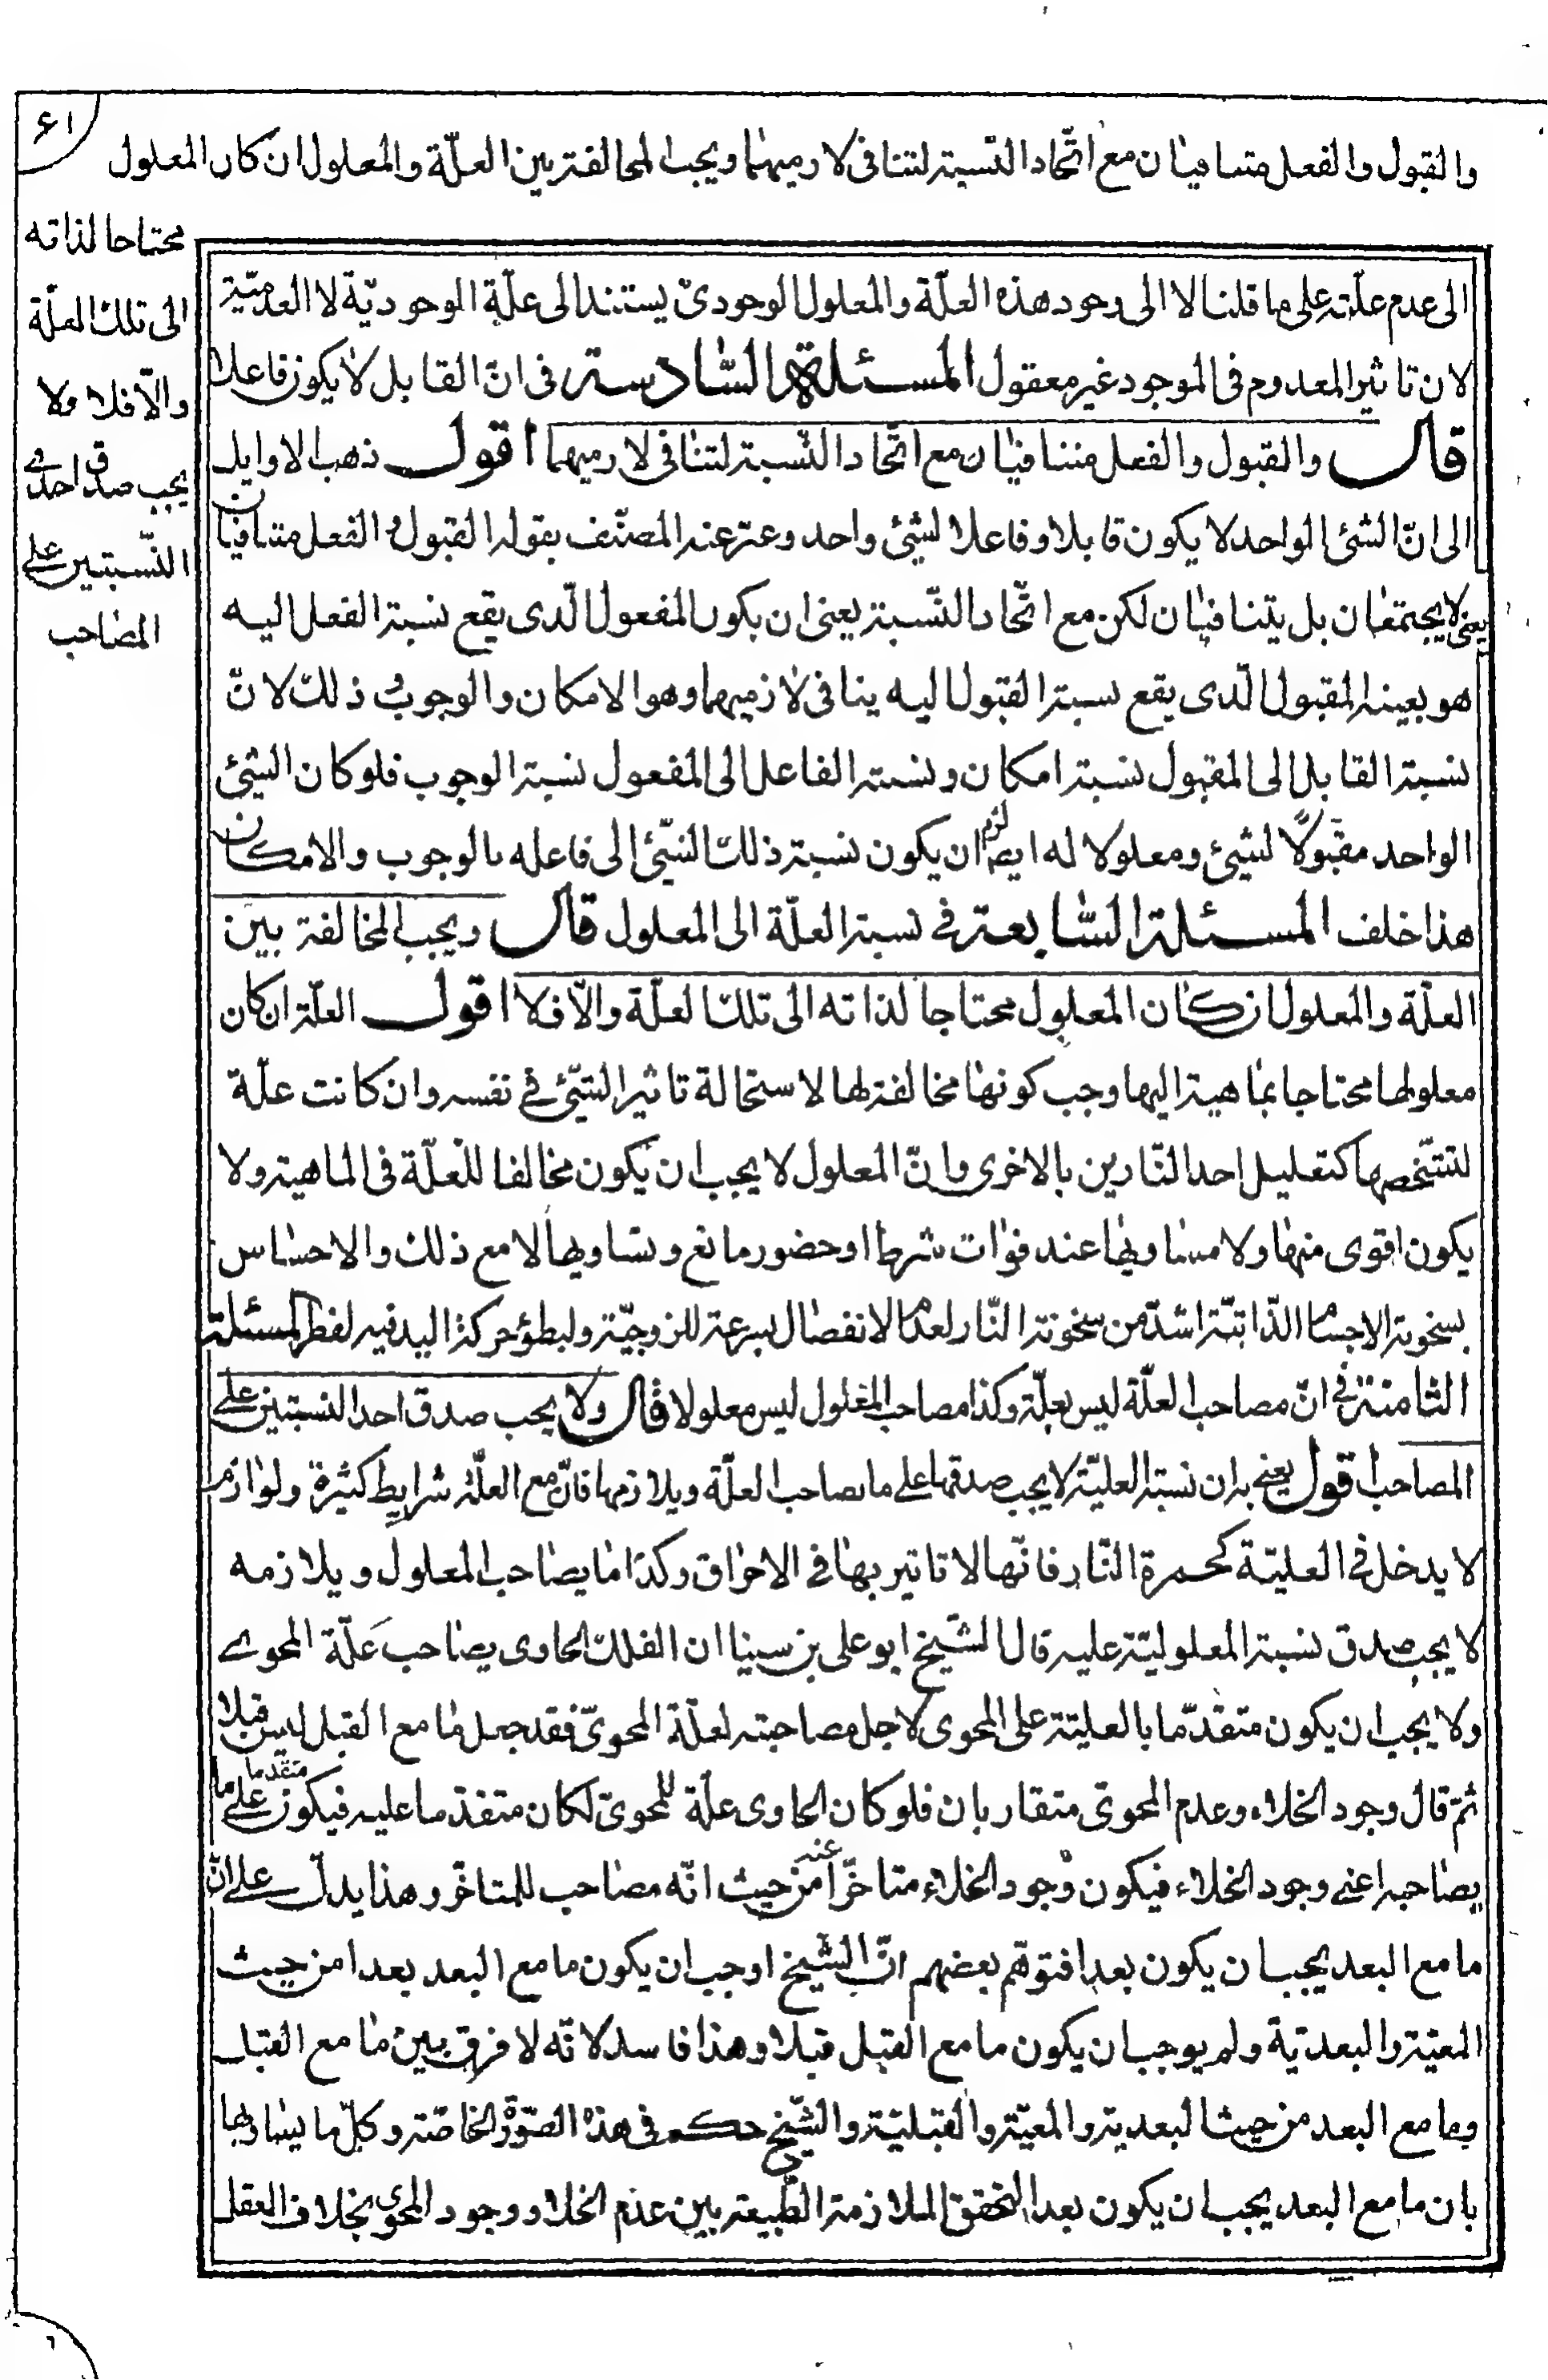 ٦١
والقبول والفعل متنافیان مع اتّحاد النّسبة لتنافی لازمیهما ویجب المخالفة بین العلّة والمعلول ان کان المعلول
محتاجا لذاته
الی تلك العلّة
والّا فلا ولا
یجب صدق احدی
النّسبتین علی
المصاحب
الی عدم علّته علی ما قلنا لا الی وجود هذه العلّة والمعلول الوجودیّ یستند الی علّة الوجودیّة لا العدمیّة
لان تاثیر المعدوم فی الموجود غیر معقول المسئلة السّادسة فی انّ القابل لا یکون فاعلا
قال والقبول والفعل متنافیان مع اتّحاد النّسبة لتنافی لازمیهما اقول ذهب الاوایل
الی انّ الشئ الواحد لا یکون قابلا وفاعلا لشئ واحد وعبّر عنه المصنّف بقوله القبول والفعل متنافیان
یعنی لا یجتمعان بل یتنافیان لکن مع اتّحاد النّسبة یعنی ان یکون المفعول الّذی یقع نسبة الفعل الیه
هو بعینه المقبول الّذی یقع نسبة القبول الیه ینافی لازمیهما وهو الامکان والوجوب وذلك لانّ
نسبة القابل الی المقبول نسبة امکان ونسبة الفاعل الی المفعول نسبة الوجوب فلو کان الشئ
الواحد مقبولًا لشئ ومعلولا له ایضا لزم ان یکون نسبة ذلك الشّئ الی فاعله بالوجوب والامکان
هذا خلف المسئلة السّابعة فی نسبة العلّة الی المعلول قال ویجب المخالفة بین
العلّة والمعلول ان کان المعلول محتاجا لذاته الی تلك العلّة والّا فلا اقول العلّة ان کان
معلولها محتاجا بماهیة الیها وجب کونها مخالفة لها لاستحالة تاثیر الشّئ فی نفسه وان کانت علّة
لتشخّصها کتعلیل احد النّارین بالاخری وانّ المعلول لا یجب ان یکون مخالفا للعلّة فی الماهیة ولا
یکون اقوی منها ولا مساویها عند فوات شرط او حضور مانع ویساویها لا مع ذلك والاحساس
بسخونة الاجسام الذّائبة اشدّ من سخونة النّار لعدم الانفصال بسرعة للزوجیّة ولبطؤ حرکة الید فیه لغلظ المسئلة
الثامنة فی انّ مصاحب العلّة لیس بعلّة وکذا مصاحب المعلول لیس معلولا قال ولا یجب صدق احد النسبتین علی
المصاحب اقول یعنی به ان نسبة العلیّة لا یجب صدقها علی ما یصاحب العلّة ویلازمها فانّ مع العلّة شرایط کثیرة ولوازم
لا یدخل فی العلیّة کحمرة النّار فانّها لا تاثیر بها فی الاحراق وکذا ما یصاحب المعلول ویلازمه
لا یجب صدق نسبة المعلولیّة علیه قال الشّیخ ابو علی بن سینا ان الفلك الحاوی یصاحب علّة المحوی
ولا یجب ان یکون متقدّما بالعلیّة علی المحوی لاجل مصاحبته لعلّة المحویّ فقد جعل ما مع القبل لیس قبلا
ثمّ قال وجود الخلاء وعدم المحویّ متقاربان فلو کان الحاوی علّة للمحویّ لکان متقدّما علیه فیکون متقدما علی ما
یصاحبه اعنی وجود الخلاء فیکون وجود الخلاء متاخّرا عنه من حیث انّه مصاحب للمتاخّر وهذا یدلّ علی انّ
ما مع البعد یجب ان یکون بعدا فتوهّم بعضهم انّ الشّیخ اوجب ان یکون ما مع البعد بعدا من حیث
المعیّة والبعدیّة ولم یوجب ان یکون ما مع القبل قبلا وهذا فاسد لانّه لا فرق بین ما مع القبل
وما مع البعد من حیث البعدیة والمعیّة والقبلیّة والشّیخ حکم فی هذه الصّورة الخاصّة وکلّ ما یساویها
بان ما مع البعد یجب ان یکون بعدا لتحقق الملازمة الطّبیعیة بین عدم الخلاء ووجود المحوی بخلاف العقل